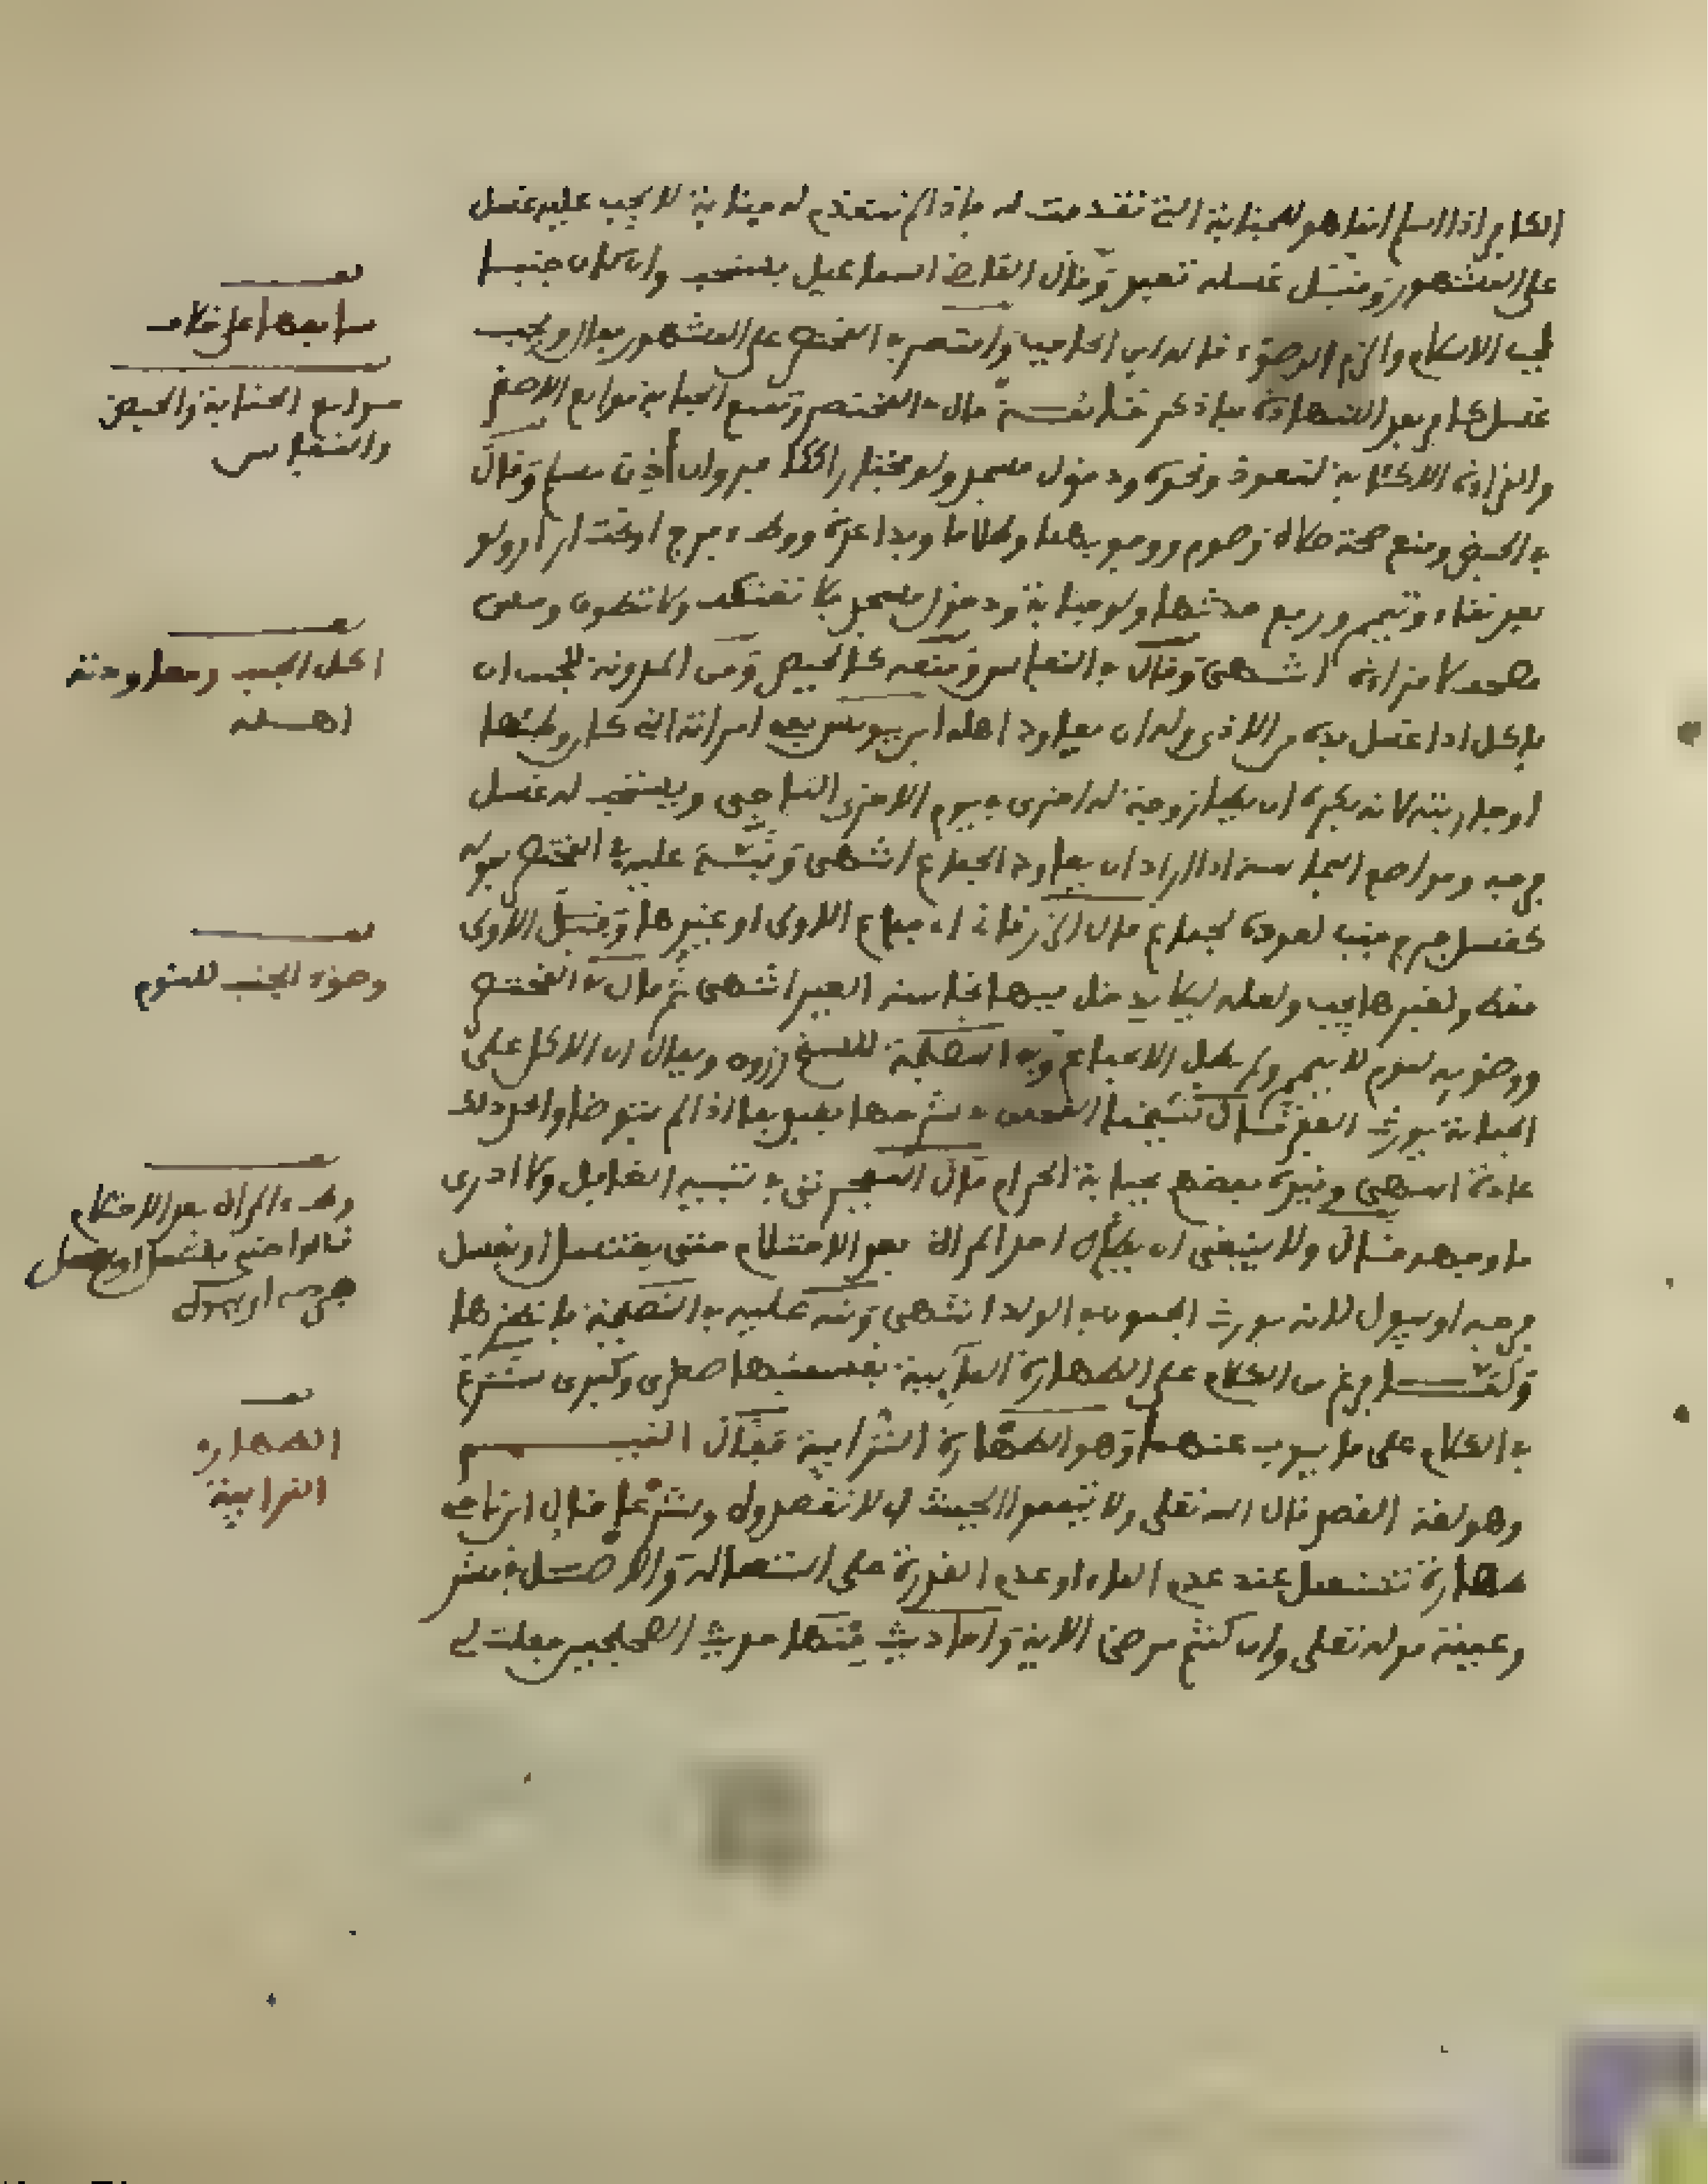 الكافر اذا اسلم انما هو للجنابة التي تقدمت له فاذا لم تتقدم له جنابة لا يجب عليه غسل
على المشهور وقيل غسله تعبد وقال القاضي اسماعيل يستحب وان كان جنبا
لجب الاسلام والزم الوضوء قاله ابن الحاجب واقتصر في المختصر على المشهور فقال ويجب
غسل كافر بعد الشهادة بما ذكر قال في المختصر وتمنع الجنابة موانع الاصغر
والقراءة الا كآية لتعوذ ونحوه ودخول مسجد ولو مجتازا ككافر وان أذن مسلم وقال
في الحيض ومنع صحة صلاة وصوم ووجوبهما وطلاقا وبدء عدة ووطء فرج او تحت ازار ولو
بعد نقاء وتيمم ورفع حدثها ولو جنابة ودخول مسجد فلا تعتكف ولا تطوف ومس
مصحف لا قراءة انتهى وقال في النفاس ومنعه كالحيض ومن المدونة للجنب ان
ياكل اذا غسل يده من الاذى وله ان يعاود اهله ابن يونس يعني امراته التي كان وطئها
او جاريته لانه يكره ان يطا زوجة له اخرى في يوم الاخرى الباجي ويستحب له غسل
فرجه ومواضع النجاسة اذا اراد ان يعاود الجماع انتهى ونبه عليه في المختصر بقوله
كغسل فرج جنب لعوده لجماع قال الزرقاني اي جماع الاولى او غيرها وقيل الاولى
فقط ولغيرها يجب ولعله ليلا يدخل فيها نجاسة الغير انتهى ثم قال في المختصر
ووضوءه لنوم لا تيمم ولم يبطل الا بجماع وفي النصيحة للشيخ زروق ويقال ان الاكل على
الجنابة يورث الفقر قال شيخنا في شرحها يعني بما اذا لم يتوضا واتخذ ذلك
عادة انتهى وقيده بعضهم بجنابة الحرام قال في تنبيه الغافل ولا ادرى
ما وجهه قال ولا ينبغي ان يطا احد المراة بعد الاحتلام حتى يغتسل او يغسل
فرجه او يبول لانه يورث الجنون في الولد انتهى ونبه عليه في النصيحة فانظرها
ولما فرغ من الكلام على الطهارة المايية بقسميها صغرى وكبرى شرع
في الكلام على ما ينوب عنهما وهو الطهارة الترابية فقال التيمم
وهو لغة القصد قال الله تعلى ولا تيمموا الخبيث اي لا تقصدوه وشرعا قال ابن ناجي
طهارة تستعمل عند عدم الماء او عدم القدرة على استعماله والاصل في مشر
وعيته قوله تعلى وان كنتم مرضى الاية واحاديث منها حديث الصحيحين جعلت لي
سابعها على خلاف
موانع الجنابة والحيض
والنفاس
اكل الجنب ومعاودته
اهله
وضوء الجنب للنوم
وطء المراة بعد الاحتلام
قالوا حتى يغتسل او يغسل
فرجه او يبول
الطهارة
الترابية